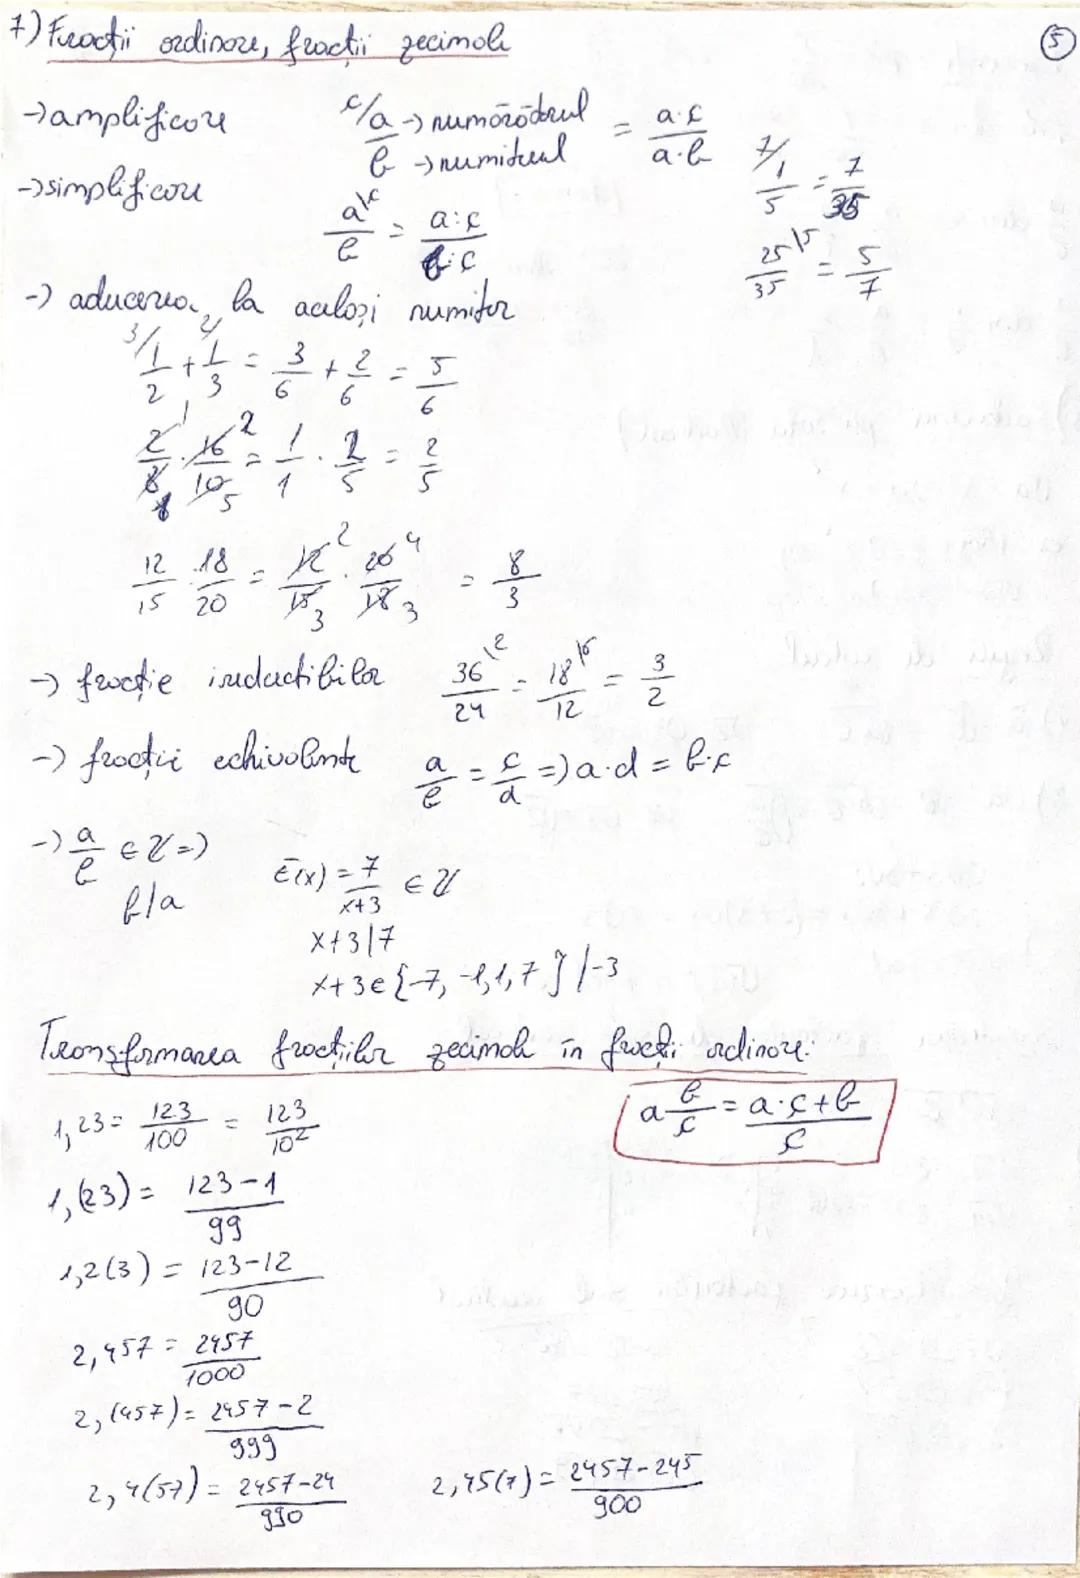 7) Fracții ordinare, fracții zecimale
5
→ amplificare c/a/b → numărătorul → numitorul = a·c/a·b
7/1/5 = 7/35
→ simplificare a\c/b = a:c/b:c
25\5/35 = 5/7
→ aducerea la același numitor
3/1/2 + 2/1/3 = 3/6 + 2/6 = 5/6
2/8 · 16/10 = 1/1 · 2/5 = 2/5
12/15 : 18/20 = 12/15 · 20/18 = 8/3
→ fracție ireductibilă 36\2/24 = 18\6/12 = 3/2
→ fracții echivalente a/b = c/d => a·d = b·c
→ a/b ∈ Z =>
b/a
E(x) = 7/x+3 ∈ Z
x+3|7
x+3 ∈ {-7, -1, 1, 7} /-3
Transformarea fracțiilor zecimale în fracții ordinare.
1,23 = 123/100 = 123/10²
a b/c = a·c+b/c
1,(23) = 123-1/99
1,2(3) = 123-12/90
2,457 = 2457/1000
2,(457) = 2457-2/999
2,4(57) = 2457-24/990
2,45(7) = 2457-245/900